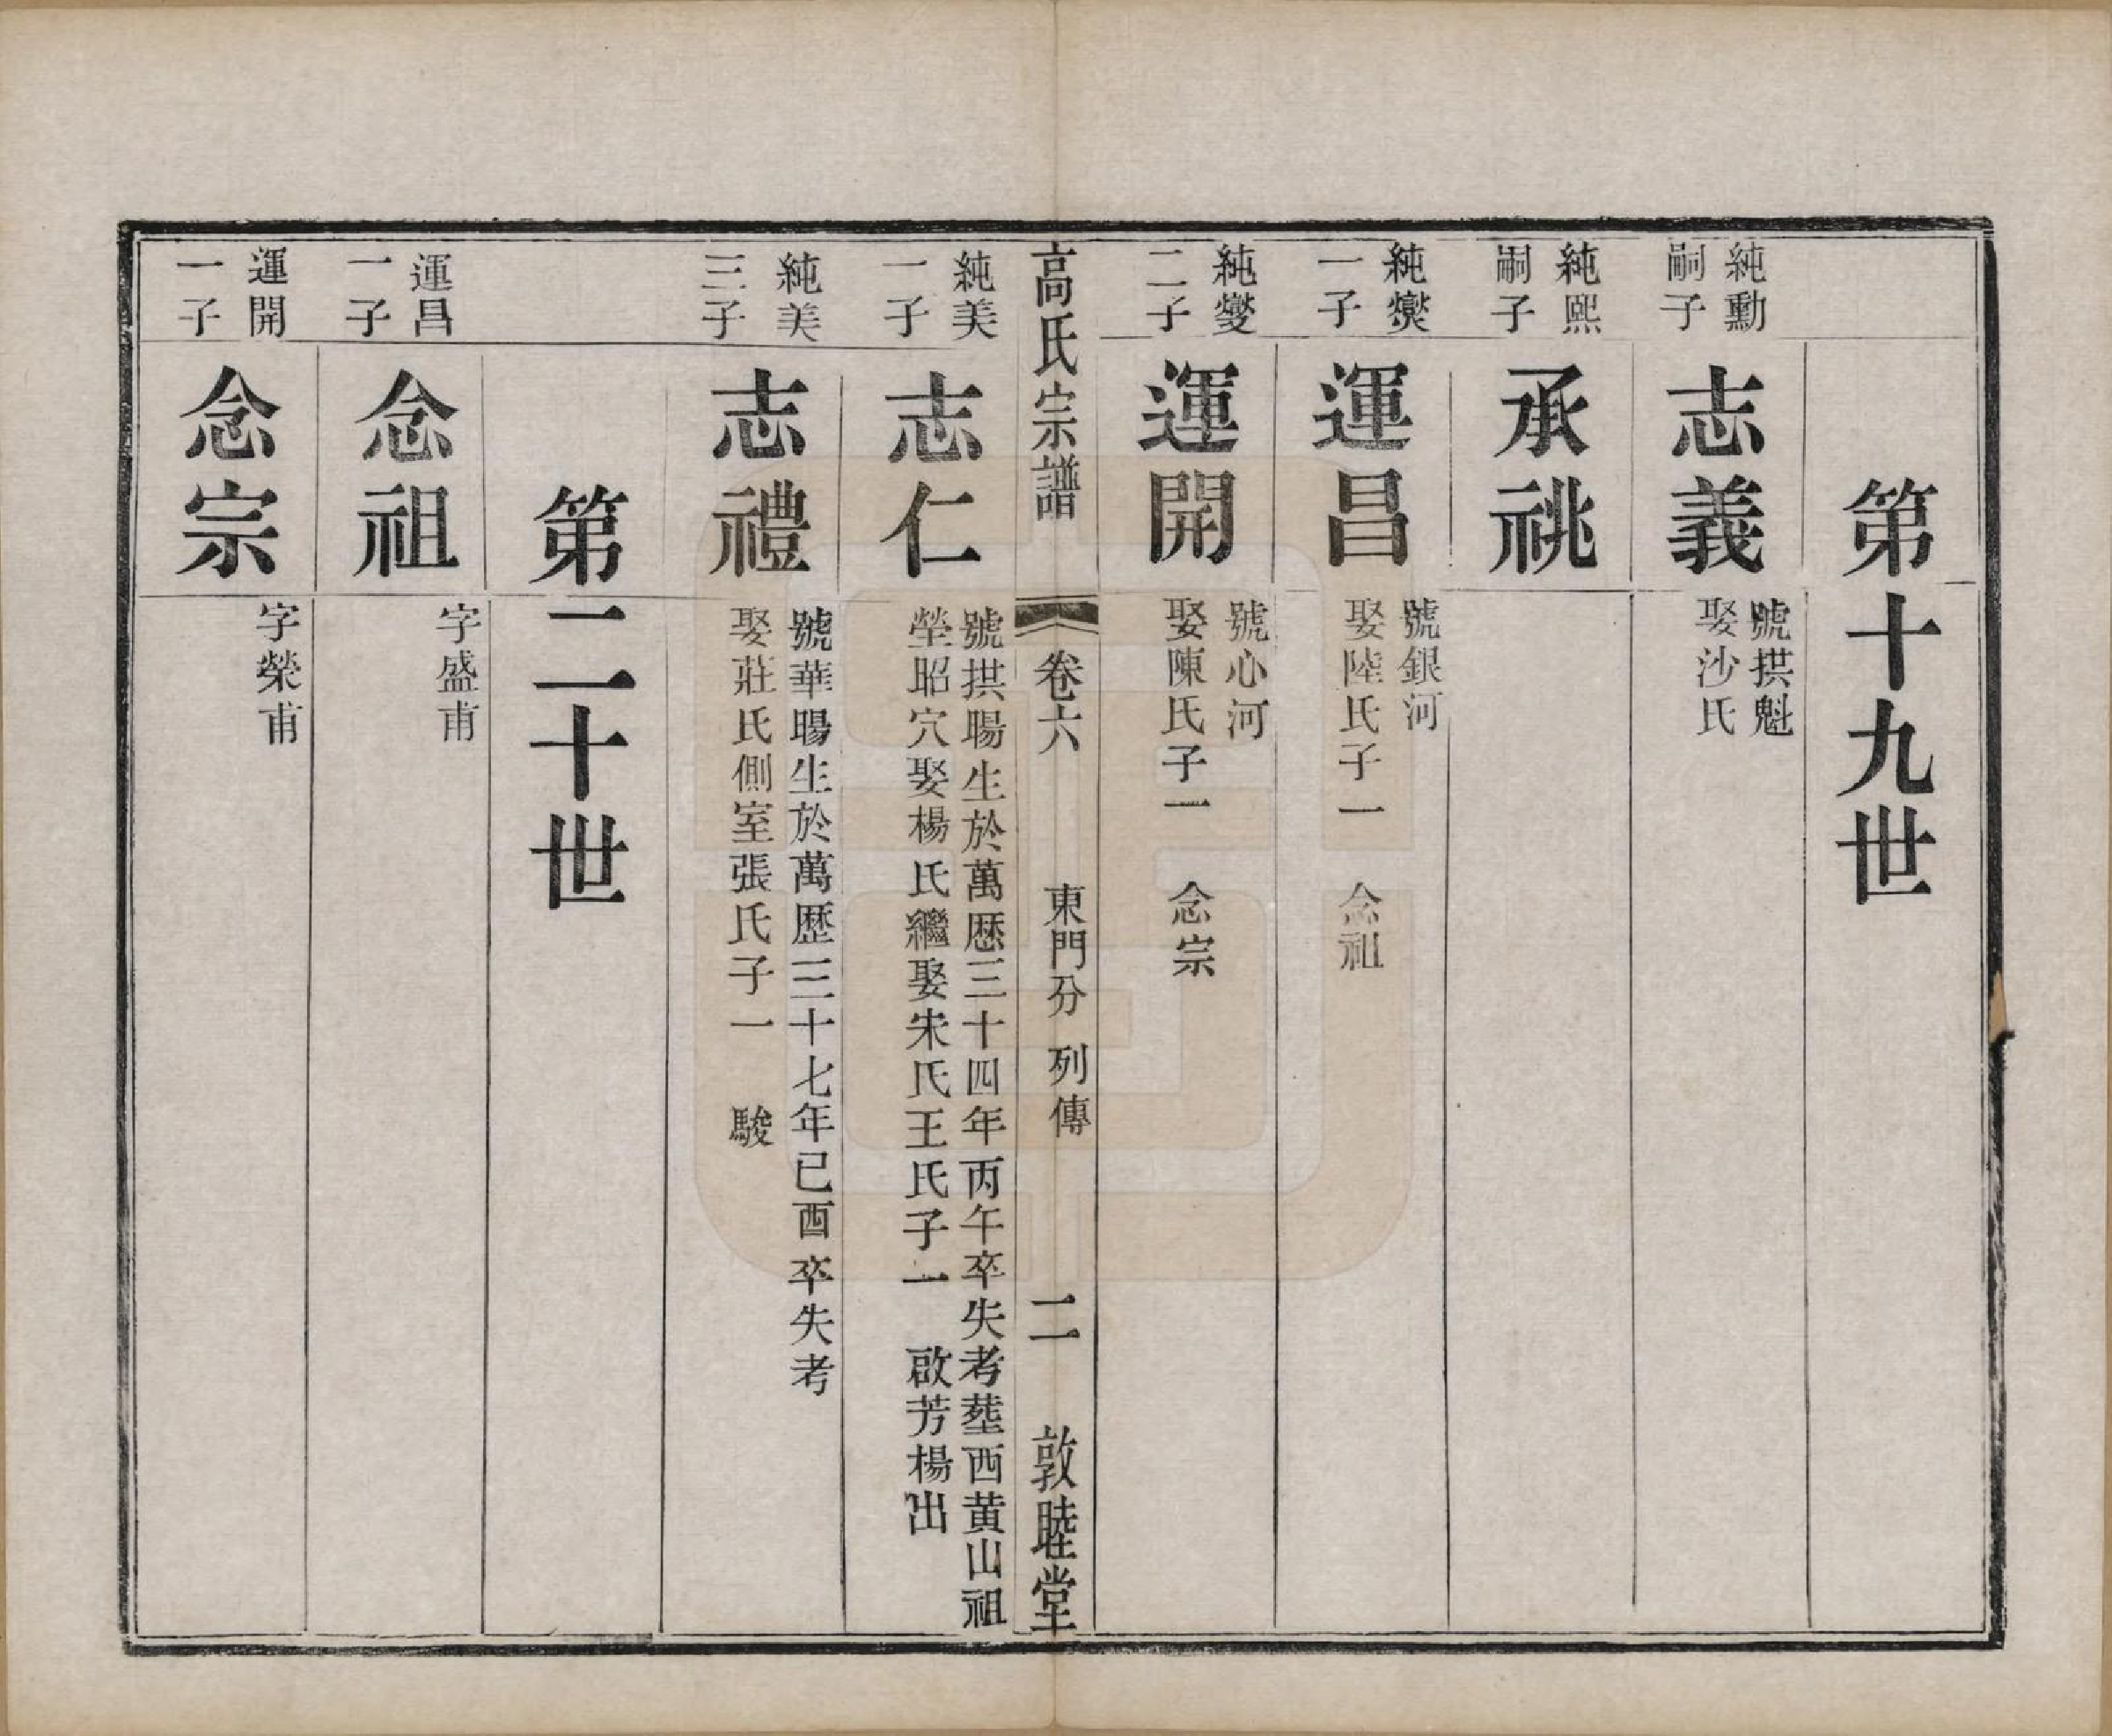 第十九世
純勳
嗣子
志義
號拱魁
娶沙氏
純熙
嗣子
承祧
純爕
一子
運昌
號銀河
娶陸氏子一　念祖
純燮
二子
運開
號心河
娶陳氏子一　念宗
高氏宗譜　卷六　東門分　列傳　二　敦睦堂
純美
一子
志仁
號拱暘生於萬歷三十四年丙午卒失考塟西黄山祖
塋昭穴娶楊氏繼娶朱氏王氏子一　啟芳楊出
純美
三子
志禮
號華暘生於萬歷三十七年已酉卒失考
娶莊氏側室張氏子一　駿
第二十世
運昌
一子
念祖
字盛甫
運開
一子
念宗
字榮甫